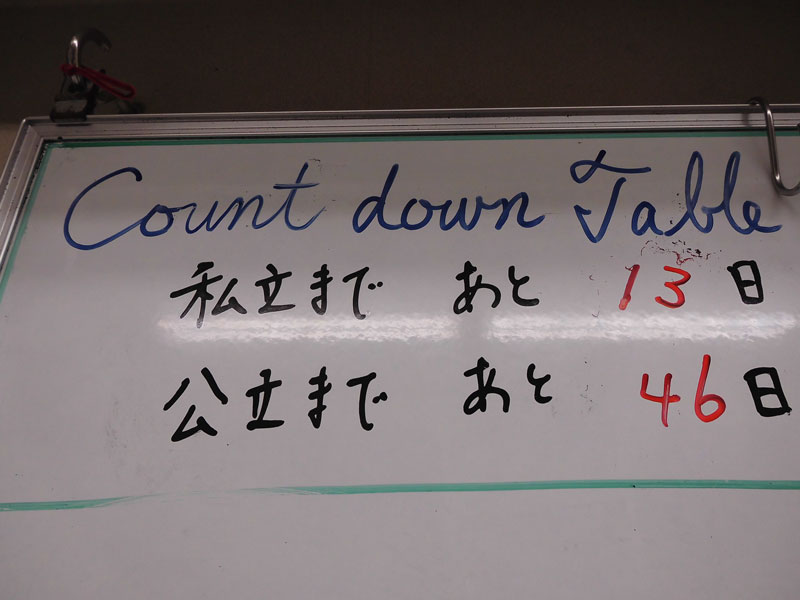 Count down Table
私立まで あと 13日
公立まで あと 46日